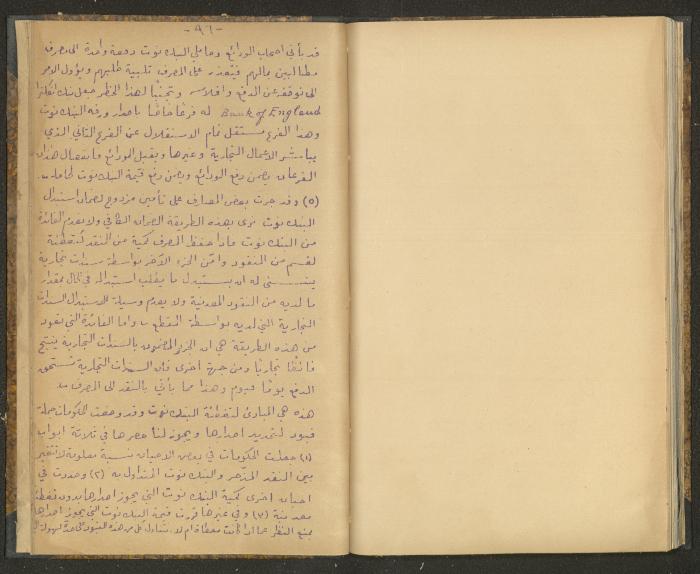 -٩٦-
قد يأتي اصحاب الودائع وحاملي البنك نوت دفعة واحدة الى المصرف
مطالبين بمالهم فيتعذر على المصرف تلبية طلبهم ويؤول الامر
الى توقفه عن الدفع وافلاسه وتجنبًا لهذا الخطر جعل بنك انكلترا
Bank of England له فرعًا خاصًا باصدار ورقه البنك نوت
وهذا الفرع مستقل تمام الاستقلال عن الفرع الثاني الذي
يباشر الاعمال التجارية وغيرها ويقبل الودائع فانفصال هذان
الفرعان يضمن دفع الودائع ويضمن دفع قيمة البنك نوت لحاملها.
(٥) وقد جرت بعض المصارف على تأمين مزدوج لضمان استبدال
البنك نوت نرى بهذه الطريقة الضمان الكافي ولا تعدم الفائدة
من البنك نوت فاذا حفظ المصرف كمية من النقد لتغطية
لقسم من النقود وأمّن الجزء الآخر بواسطة سندات تجارية
يتسنى له ان يستبدل ما يطلب استبداله في الحال بمقدار
ما لديه من النقود المعدنية ولا يعدم وسيلة لاستبدال السندات
التجارية التي لديه بواسطة القطع واما الفائدة التي تعود
من هذه الطريقة هي ان الجزء المضمون بالسندات التجارية ينتج
فائضًا تجاريًا ومن جهة اخرى فان السندات التجارية تستحق
الدفع يومًا فيوم وهذا مما يأتي بالنقد الى المصرف
هذه هي المبادئ لتغطية البنك نوت وقد وضعت الحكومات جملة
قيود لتحديد اصدارها ويجوز لنا حصرها في ثلاثة ابواب
(١) جعلت الحكومات في بعض الاحيان نسبة معلومة لا تتغير
بين النقد المدّخر والبنك نوت المتداول به (٢) وحددت في
احيان اخرى كمية البنك نوت التي يجوز اصدارها بدون تغطية
معدنية (٣) وفي غيرها قررت قيمة البنك نوت التي يجوز اصدارها
بغض النظر عما اذا كانت مغطاة ام لا. نتناول كل من هذه القيود على حدة